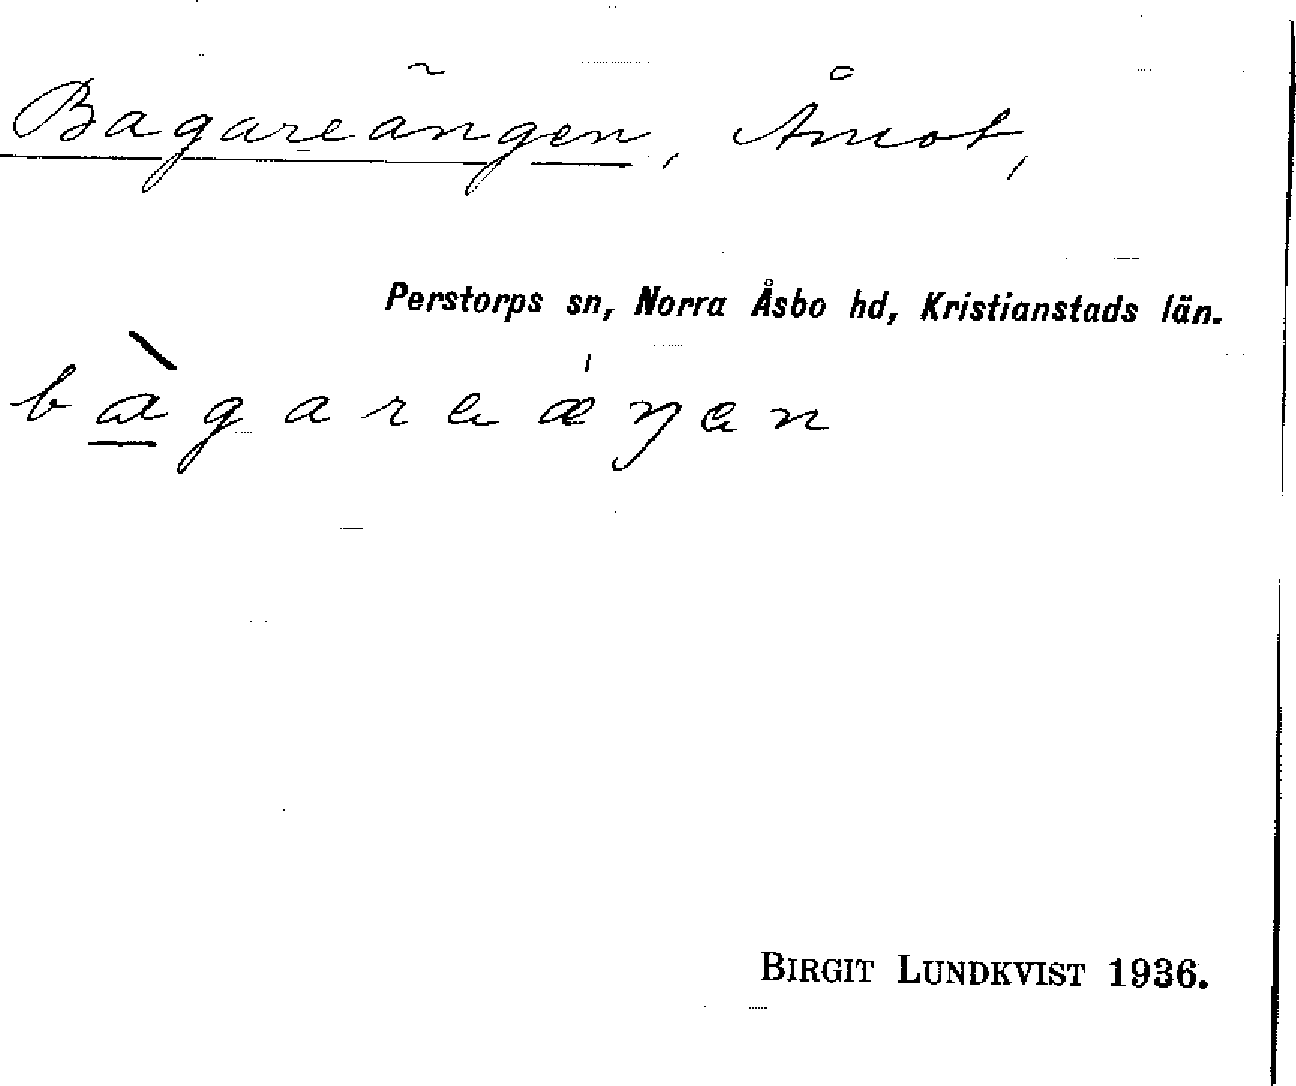 Bagareängen, Åmot,
Perstorps sn, Norra Åsbo hd, Kristianstads län.
bàgareæ̍ŋen
BIRGIT LUNDKVIST 1936.